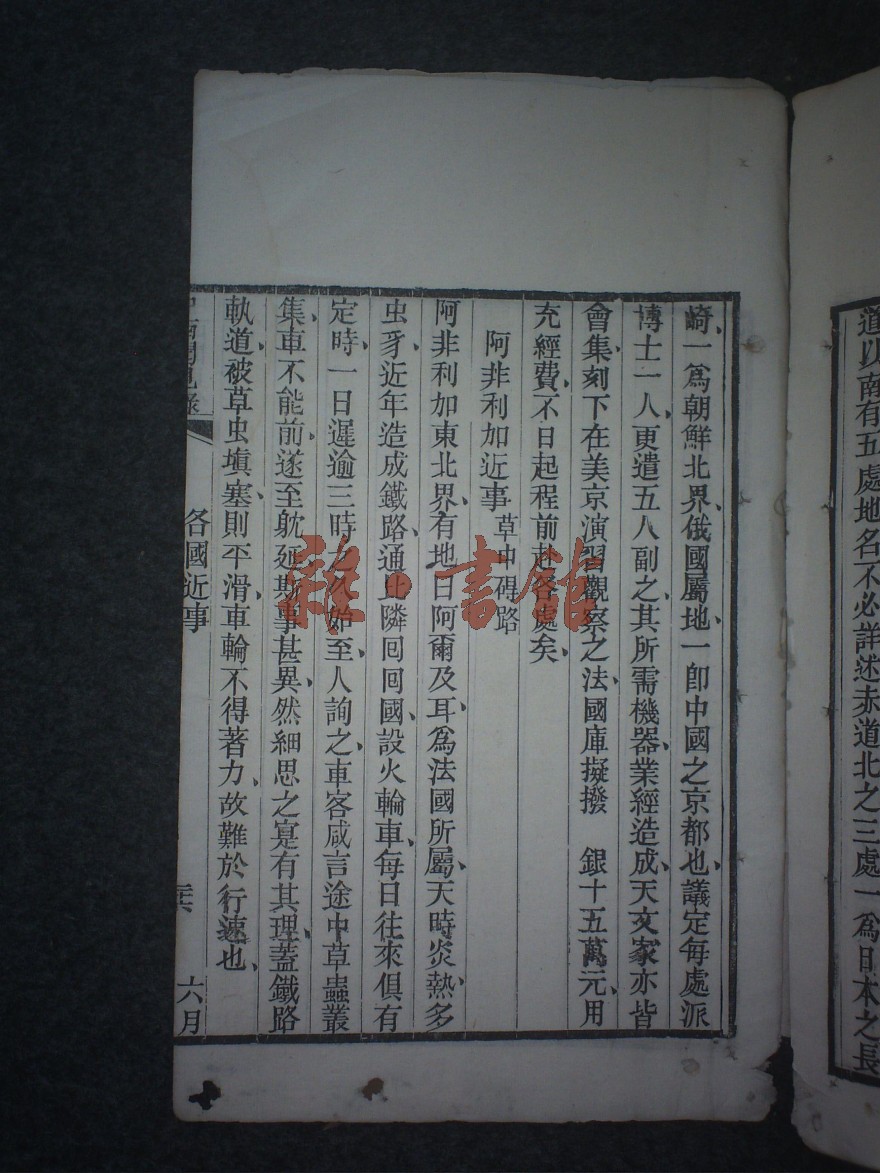 道以南有五處地名不必詳述赤道北之三處一爲日本之長
崎、一爲朝鮮北界、俄國屬地、一卽中國之京都也、議定每處派
博士一人、更遣五人副之、其所需機器、業經造成、天文家亦皆
會集、刻下在美京演習觀察之法、國庫擬撥 銀十五萬元、用
充經費、不日起程前赴各處矣、
阿非利加近事 草虫碍路
阿非利加東北界、有地曰阿爾及耳、爲法國所屬、天時炎熱、多
虫豸、近年造成鐵路、通此隣囘囘國、設火輪車、每日往來俱有
定時、一日遲逾三時之久始至、人詢之、車客咸言途中草蟲叢
集、車不能前、遂至躭延、斯事甚異、然細思之、寔有其理、蓋鐵路
軌道被草虫塡塞、則平滑車輪不得著力、故難於行速也、
中西聞見錄 各國近事 六月
雜·書館